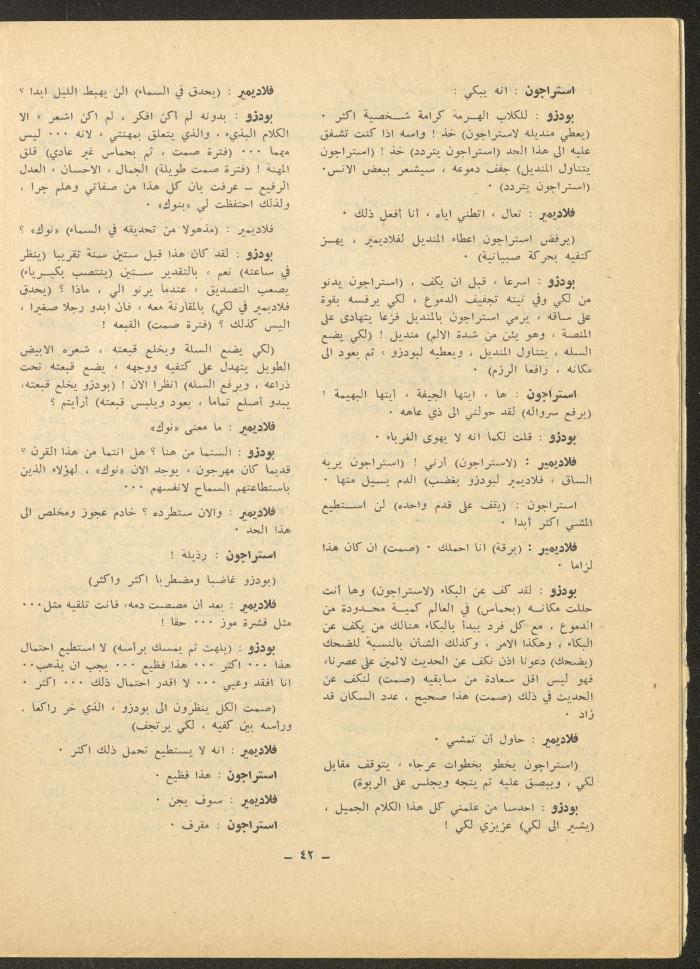 استراجون : انه يبكي :
بودزو : للكلاب الهرمة كرامة شخصية اكثر ٠
(يعطي منديله لاستراجون) خذ ! واسه اذا كنت تشفق
عليه الى هذا الحد (استراجون يتردد) خذ ! (استراجون
يتناول المنديل) جفف دموعه ، سيشعر ببعض الانس٠
(استراجون يتردد) ٠
فلاديمير : تعال ، اتطني اياه ، أنا أفعل ذلك ٠
(يرفض استراجون اعطاء المنديل لفلاديمير ، يهز
كتفيه بحركة صبيانية) ٠
بودزو : اسرعا ، قبل ان يكف ، (استراجون يدنو
من لكي وفي نيته تجفيف الدموع ، لكي يرفسه بقوة
على ساقه ، يرمي استراجون بالمنديل فزعا يتهادى على
المنصة ، وهو يئن من شدة الالم) منديل ! (لكي يضع
السله ، يتناول المنديل ، ويعطيه لبودزو ، ثم يعود الى
مكانه ، رافعا الرزم) ٠
استراجون : ها ، ايتها الجيفة ، أيتها البهيمة !
(يرفع سرواله) لقد حولني الى ذي عاهه ٠
بودزو : قلت لكما انه لا يهوى الغرباء ٠
فلاديمير : (لاستراجون) أرني ! (استراجون يريه
الساق ، فلاديمير لبودزو بغضب) الدم يسيل منها ٠
استراجون : (يقف على قدم واحده) لن استطيع
المشي اكثر أبدا ٠
فلاديمير : (برقة) انا احملك ٠ (صمت) ان كان هذا
لزاما ٠
بودزو : لقد كف عن البكاء (لاستراجون) وها أنت
حللت مكانه (بحماس) في العالم كمية محدودة من
الدموع ، مع كل فرد يبدأ بالبكاء هنالك من يكف عن
البكاء ، وهكذا الامر ، وكذلك الشأن بالنسبة للضحك
(يضحك) دعونا اذن نكف عن الحديث لائمين على عصرنا،
فهو ليس اقل سعادة من سابقيه (صمت) لنكف عن
الحديث في ذلك (صمت) هذا صحيح ، عدد السكان قد
زاد ٠
فلاديمير : حاول أن تمشي ٠
(استراجون يخطو بخطوات عرجاء ، يتوقف مقابل
لكي ، ويبصق عليه ثم يتجه ويجلس على الربوة)
بودزو : احدسا من علمني كل هذا الكلام الجميل ،
(يشير الى لكي) عزيزي لكي !
فلاديمير : (يحدق في السماء) الن يهبط الليل ابدا ؟
بودزو : بدونه لم أكن افكر ، لم اكن اشعر ، الا
الكلام البذيء ، والذي يتعلق بمهنتي ، لانه ٠٠٠ ليس
مهما ٠٠٠ (فترة صمت ، ثم بحماس غير عادي) قلق
المهنة ! (فترة صمت طويلة) الجمال ، الاحسان ، العدل
الرفيع ــ عرفت بان كل هذا من صفاتي وهلم جرا ،
ولذلك احتفظت لي «بنوك» ٠
فلاديمير : (مذهولا من تحديقه في السماء) «نوك» ؟
بودزو : لقد كان هذا قبل ستين سنة تقريبا (ينظر
في ساعته) نعم ، بالتقدير ستين (ينتصب بكبرياء)
يصعب التصديق ، عندما يرنو الي ، ماذا ؟ (يحدق
فلاديمير في لكي) بالمقارنة معه ، فان ابدو رجلا صغيرا ،
اليس كذلك ؟ (فترة صمت) القبعه !
(لكي يضع السلة ويخلع قبعته ، شعره الابيض
الطويل يتهدل على كتفيه ووجهه ، يضع قبعته تحت
ذراعه ، ويرفع السله) انظرا الان ! (بودزو يخلع قبعته،
يبدو أصلع تماما ، يعود ويلبس قبعته) أرأيتم ؟
فلاديمير : ما معنى «نوك»
بودزو : الستما من هنا ؟ هل انتما من هذا القرن ؟
قديما كان مهرجون ، يوجد الان «نوك» ، لهؤلاء الذين
باستطاعتهم السماح لانفسهم ٠٠٠
فلاديمير : والان ستطرده ؟ خادم عجوز ومخلص الى
هذا الحد ٠
استراجون : رذيلة !
(بودزو غاضبا ومضطربا اكثر واكثر)
فلاديمير : بعد أن مصصت دمه، فأنت تلقيه مثل٠٠٠
مثل قشرة موز ٠٠٠ حقا !
بودزو : (يلهث ثم يمسك برأسه) لا استطيع احتمال
هذا ٠٠٠ اكثر ٠٠٠ هذا فظيع ٠٠٠ يجب ان يذهب٠٠
انا افقد وعيي ٠٠٠ لا اقدر احتمال ذلك ٠٠٠ اكثر ٠
(صمت الكل ينظرون الى بودزو ، الذي خر راكعا .
ورأسه بين كفيه ، لكي يرتجف)
فلاديمير : انه لا يستطيع تحمل ذلك اكثر ٠
استراجون : هذا فظيع ٠
فلاديمير : سوف يجن ٠
استراجون : مقرف ٠
ــ ٤٢ ــ